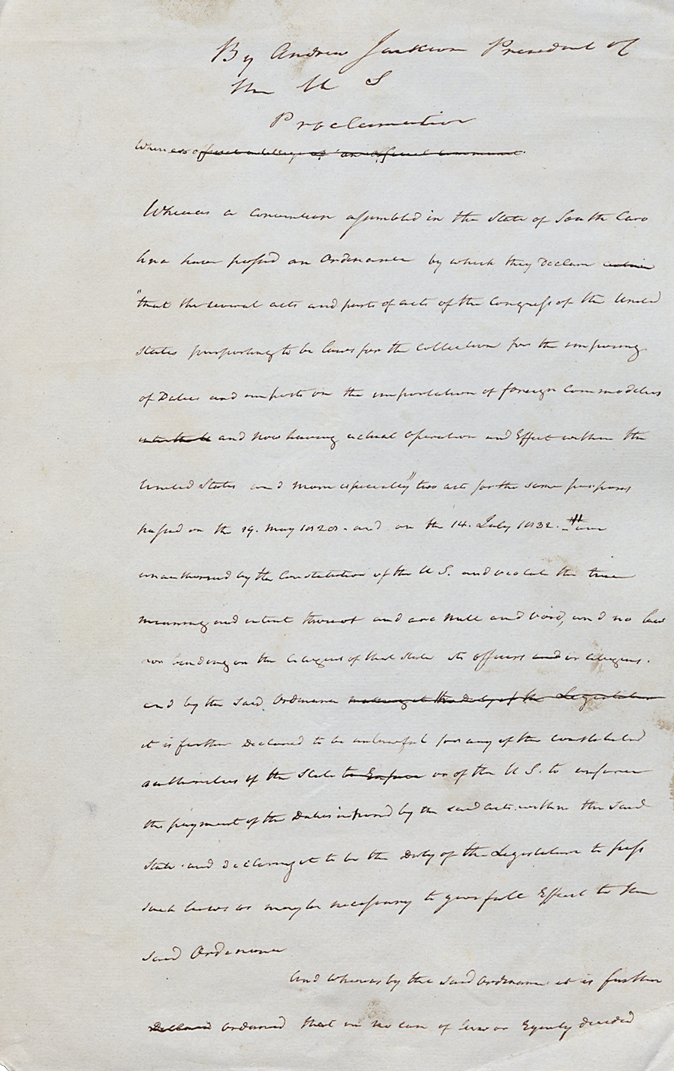 By Andrew Jackson President of
the U S
Proclamation
Whereas official of an official
Whereas a Convention assembled in the State of South Caro
lina have passed an Ordinance by which they Declare
"that the several acts and parts of acts of the Congress of the United
States purporting to be laws for the Collection for the imposing
of Duties and imposts on the importation of foreign Commodities
and now having actual Operation and Effect within the
United States and more especially" two acts for the same purposes
passed on the 19. May 1828. and on the 14. July 1832. "are
unauthorised by the Constitution of the U S. and violate the true
meaning and intent thereof and are Null and Void, and no law
nor binding on the Citizens of that State its officers and or citizens.
and by the said Ordinance making it the duty of the Legislature
it is further Declared to be unlawful for any of the constituted
authorities of the State to Enforce or of the U S. to enforce
the payment of the Duties imposed by the said acts within the said
State and declaring it to be the Duty of the Legislature to pass
such laws as may be necessary to give full Effect to the
said Ordinance
And whereas by the said Ordinance it is further
Declared ordained that in no case of Law or Equity decided